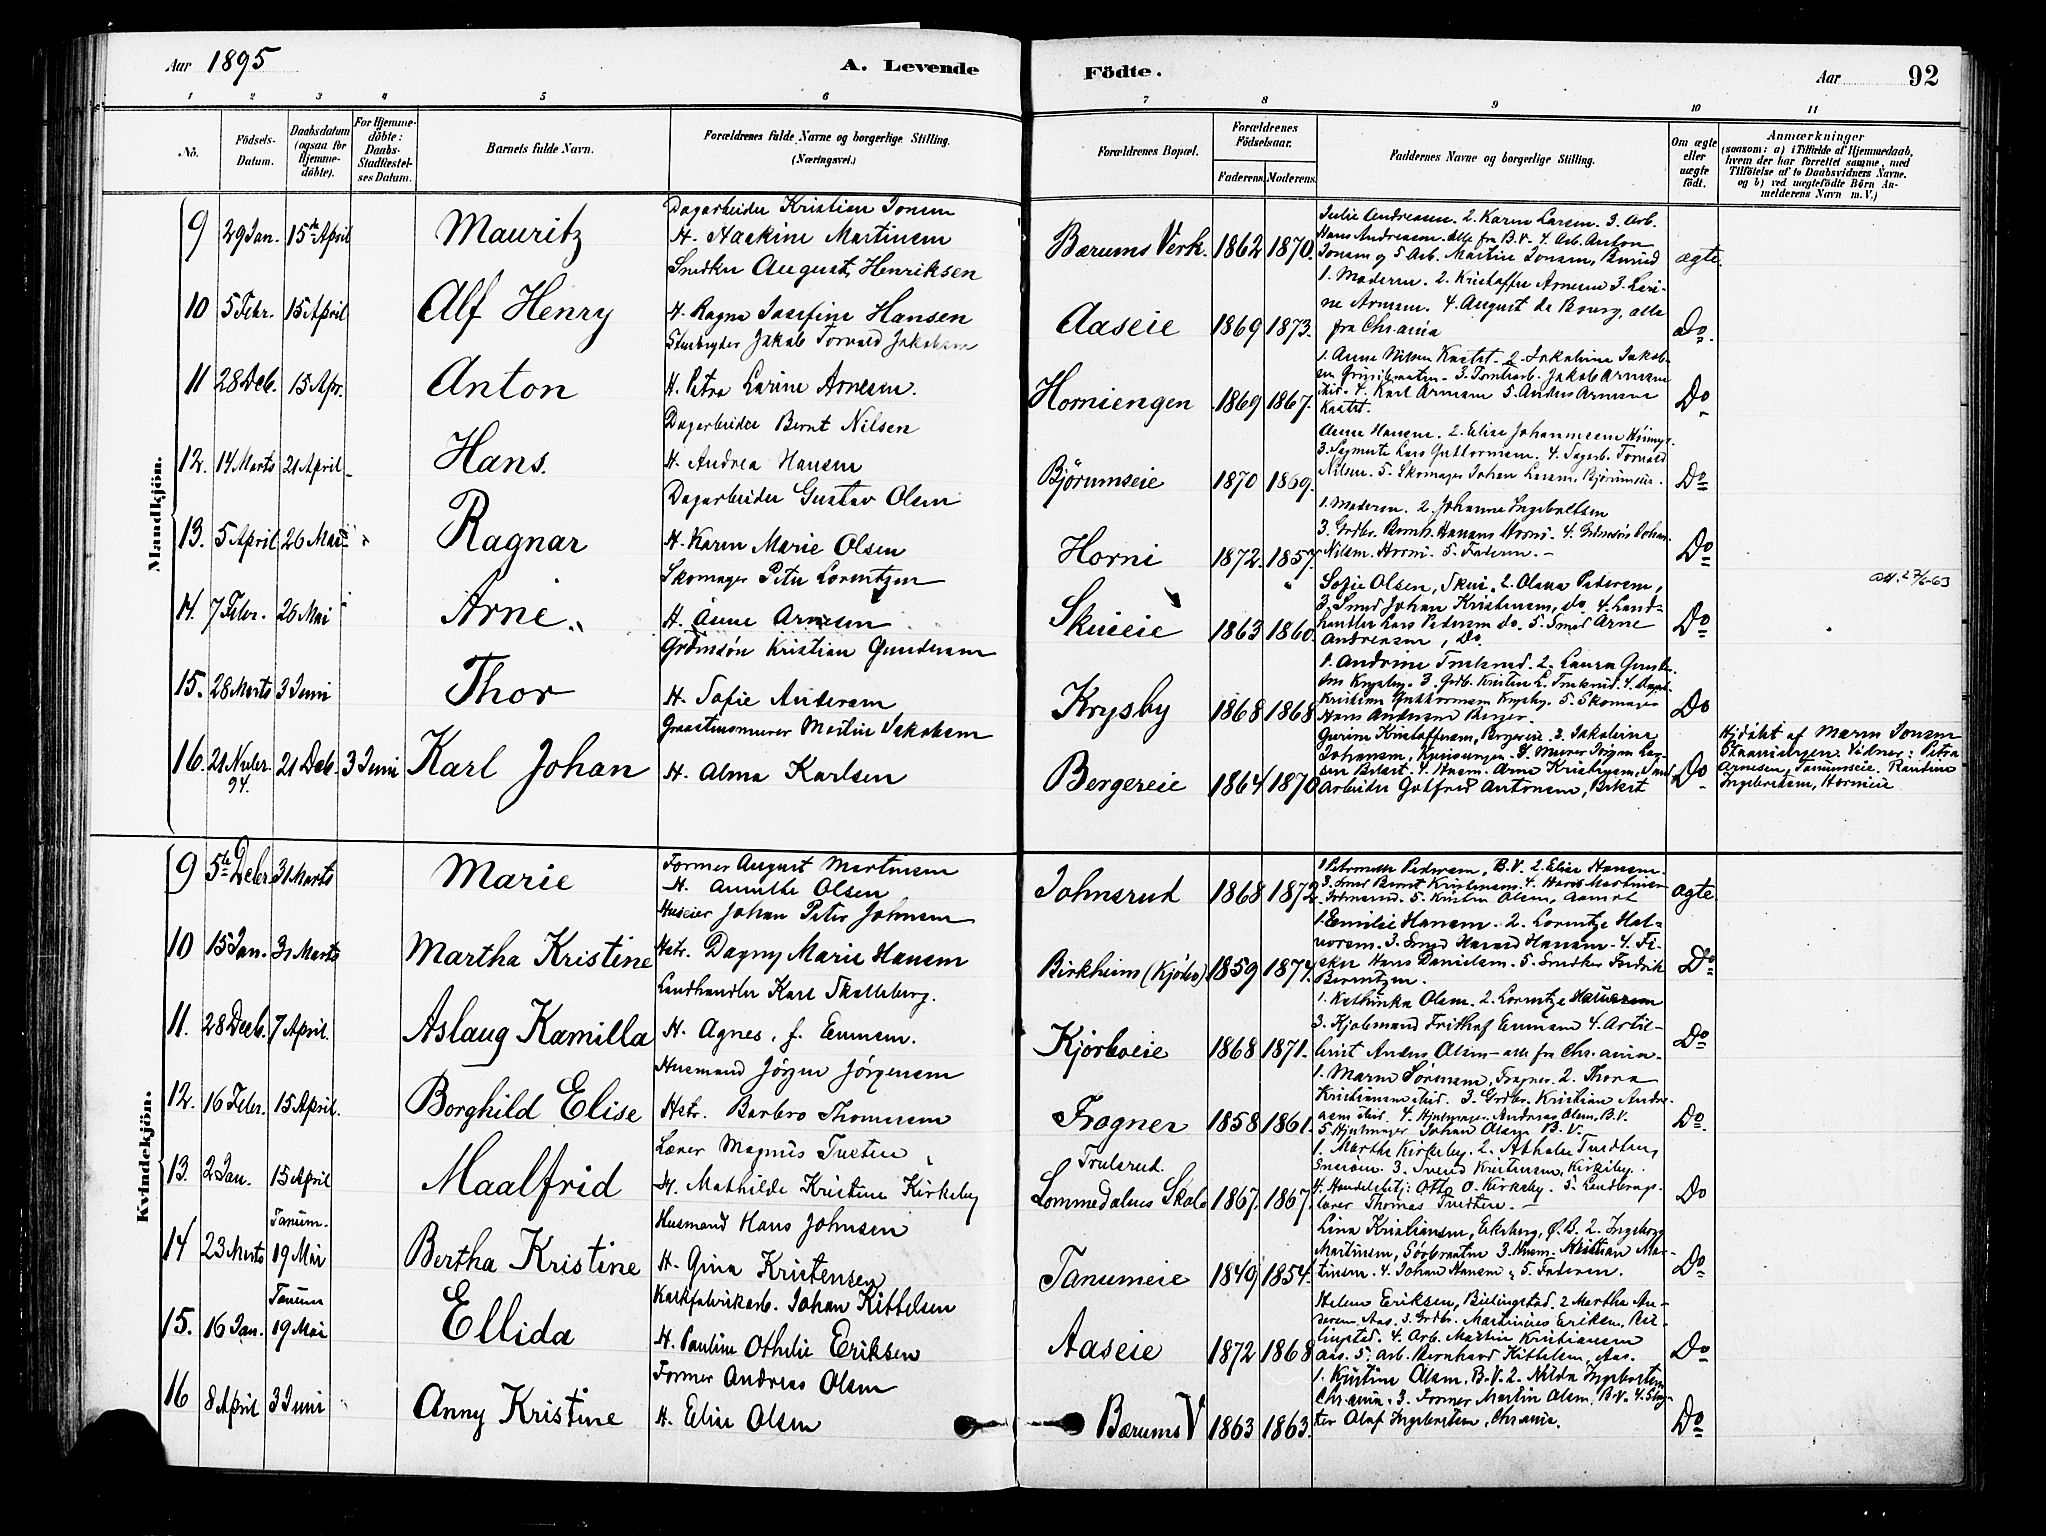 Aar 1895
A. Levende
Födte.
Aar 92
1 2 3 4 5 6 7 8 9 10 11
No.
Födsels-
Datum.
Daabsdatum
(ogsaa for
Hjemme-
döbte).
For Hjemme-
döbte:
Daabs-
Stadfæstel-
ses Datum.
Barnets fulde Navn.
Forældrenes fulde Navne og borgerlige Stilling.
(Næringsvei.)
Forældrenes Bopæl.
Forældrenes
Födselsaar.
Faderens. Moderens.
Faddernes Navne og borgerlige Stilling.
Om ægte
eller
uægte
födt.
Anmærkninger
(saasom: a) i Tilfælde af Hjemmedaab,
hvem der har forrettet samme, med
Tilföielse af to Daabsvidners Navne.
og b) ved uægtefödte Börn An-
melderens Navn m. V.)
Mandkjön.
9 29 Jan. 15de April Mauritz
Dagarbeider Kristian Jonsen
H. Haakine Martinsen
Bærums Verk. 1862 1870.
Julie Andreasen. 2. Karen Larsen. 3. Arb.
Hans Andreasen. alle fra B.V. 4. Arb. Anton
Jonsen og 5. Arb. Martin Jonsen, Burud
ægte.
10 5 Febr. 15 April Alf Henry
Snedker August Henriksen
H. Ragna Josefine Hansen
Aaseie 1869 1873.
1. Moderen. 2. Kristoffer Arnesen 3. Lari-
ne Arnesen. 4. August de Bourg, alle
fra Chr.ania
Do.
11 28 Deb. 15 Apr. Anton
Stenbryder Jakob Torvald Jakobsen
H. Petra Larine Arnesen.
Horniengen 1869 1867.
Jakob Arnesen
4. Karl Arnesen 5. Anders Arnesen
Do
12. 14 Marts 21 April Hans.
Dagarbeider Bernt Nilsen
H. Andrea Hansen
Bjørumseie 1870 1869.
Anne Hansen. 2. Elise Johannesen
3. Lars Guttormsen. 4. Dagarb. Torvald
Nilsen. 5. Skomager Johan Larsen, Bjørumseie.
Do
13. 5 April 26 Mai Ragnar
Dagarbeider Gustav Olsen
H. Karen Marie Olsen
Horni 1872. 1857.
1. Moderen. 2. Johanne Ingeboltsen
3. Grdbr. Bernh. Hansens Horni. 4. Grdmsøn Johan
Nilsen. Horni. 5. Faderen. —
Do
14. 7 Febr. 26 Mai Arne
Skomager Peter Lorentzen
H. Anne Arnesen
Skuieie 1863 1860.
Sofie Olsen, Skui. 2. Olava Pedersen,
3. Smed Johan Kristensen, do. 4. Land-
handler Lars Pedersen do. 5. Smed Arne
Andreasen, Do.
Do
15. 28 Marts 3 Juni Thor
Grdmsøn Kristian Gundersen
H. Sofie Andersen
Krysby 1868 1868
1. Andrine Trulsrud. 2. Laura
Krysby. 3. Grdb. Kristen L. Trulsrud. 4.
Kristian Guttormsen Krysby. 5. Skomager
Hans Andersen Berger.
Do
16. 21 Novbr. 94. 21 Deb. 3 Juni Karl Johan
Graastensmurer Martin Jakobsen
H. Alma Karlsen
Bergereie 1864 1870
Gurine Kristoffersen, Bergereie. 3. Jakobine
Johansen, Murer Jørgen Lar-
sen
arbeider Gotfred Antonsen,
Do
Hjdøbt af Maren Jonsen
Vidner: Petra
Arnesen, Tanumseie. Pauline
Ingebretsen, Hornieie
Kvindekjön.
9 5te Debr 31 Marts Marie
Former August Martinsen
H. Annette Olsen
Johnsrud 1868 1872
1 Petronelle Pedersen, B.V. 2. Elise Hansen
3. Smed Bernt Kristensen. 4. Hans Martinsen
Johnsrud. 5. Kristen Olsen, Aamot
ægte.
10 15 Jan. 31 Marts Martha Kristine
Huseier Johan Peter Johnsen
Hstr. Dagny Marie Hansen
Birkheim (Kjørbo) 1859 1874.
1. Emilie Hansen. 2. Lorentze Hal-
vorsen. 3. Smed Harald Hansen. 4. Fi-
sker Hans Danielsen. 5. Snedker Fredrik
Berentzen.
Do
11. 28 Decb. 7 April. Aslaug Kamilla
Landhandler Karl Skalleberg.
H. Agnes, f. Ennesen.
Kjørboeie 1868 1871.
1. Kathinka Olsen. 2. Lorentze Halvorsen
3. Kjøbmand Frithjof Ennesen 4. Artil-
lerist Anders Olsen — alle fra Chr.ania.
Do
12. 16 Febr. 15 April. Borghild Elise
Husmand Jörgen Jörgensen
Hstr. Barbro Thomesen
Frogner 1858 1861.
1. Maren Sørensen, Frogner. 2. Thora
Kristiansen ibid. 3. Grdbr. Kristian Andre-
asen ibid. 4. Hjulmager Andreas Olsen, B.V.
5. Hjulmager Johan Olsen B.V.
Do.
13. 2 Jan. 15 April Maalfrid
Lærer Magnus Tveten
H. Mathilde Kristine Kirkeby
Trulsrud.
Lommedalens Skole 1867. 1867.
1. Marthe Kirkeby. 2. Athalie Tvedten,
Snarøen. 3. Svend Kristensen, Kirkeby.
4. Handelsbetj: Otto O. Kirkeby. 5. Landbrugs-
lærer Thomas Tvedten. —
Do
14 23 Marts Tanum. 19 Mai Bertha Kristine
Husmand Hans Johnsen
H. Gina Kristensen
Tanumeie 1849 1854.
Lina Kristiansen, Eiksberg, Ø.B. 2. Ingeborg
Martinsen, 3. Husm. Kristian Mar-
tinsen. 4. Johan Hansen, 5. Faderen.
Do
15. 16 Jan. Tanum 19 Mai Ellida
Kalkfabrikarb. Johan Kittelsen
H. Pauline Othilie Eriksen
Aaseie 1872 1868
Helene Eriksen, Billingstad. 2 Martha An-
dersen Aas. 3. Grdbr. Martinius Eriksen, Bil-
lingstad. 4. Arb. Martin Kristiansen
Aas. 5. Arb. Bernhard Kittelsen, Aas.
Do
16 8 April 3 Juni Anny Kristine
Former Andreas Olsen
H. Elise Olsen
Bærums V 1863 1863.
1. Kristine Olsen, B.V. 2. Hilda Ingebretsen
Chr.ania. 3. Former Martin Olsen, B.V. 4.
Olaf Ingebretsen, Chr.ania.
Do